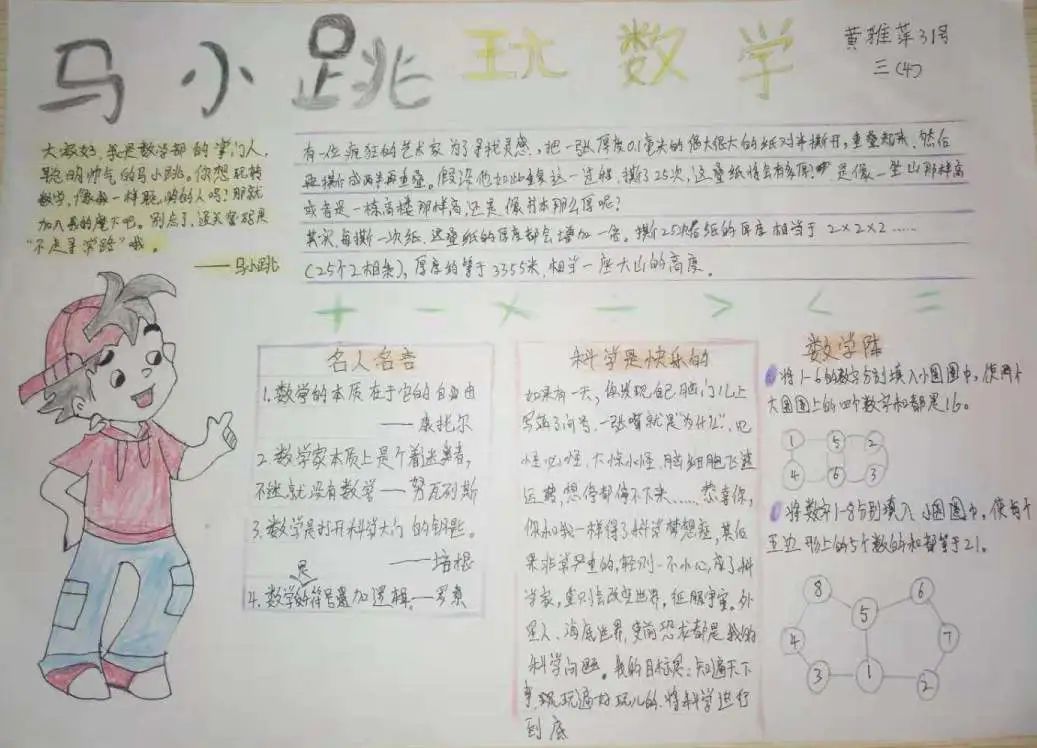 马小跳玩数学
黄雅苹31号
三(4)
大家好,我是数学部的掌门人,
聪明帅气的马小跳。你想玩转
数学,像我一样聪明的人吗?那就
加入我的麾下吧。别忘了,通关密码是
“不走寻常路”哦。
——马小跳
有一位疯狂的艺术家为了寻找灵感,把一张厚度0.1毫米的很大很大的纸对半撕开,重叠起来,然后
再撕成两半再重叠。假设他如此重复这一过程,撕了25次,这叠纸将会有多厚?是像一坐山那样高
或者是一栋高楼那样高,还是像书本那么厚呢?
其实,每撕一次纸,这叠纸的厚度都会增加一倍。撕25次后纸的厚度相当于2×2×2……
(25个2相乘),厚度约等于3355米,相当一座大山的高度。
+ - × ÷ > < =
名人名言
1.数学的本质在于它的自由
——康托尔
2.数学家本质上是个着迷者,
不迷就没有数学——努瓦列斯
3.数学是打开科学大门的钥匙。
——培根
是
4.数学的符号加逻辑。—罗素
科学是快乐的
如果有一天,你发现自己脑门儿上
写满了问号,一张嘴就是“为什么”,见
怪心怪,大惊小怪,脑细胞飞速
运转,想停都停不下来……恭喜你,
你和我一样得了科学梦想症,其后
果非常严重的,轻则一不小心,成了科
学家,重则会改变世界,征服宇宙。外
星人、海底世界,史前恐龙都是我的
科学问题。我的目标是:知遍天下
事,玩遍好玩儿的,将科学进行
到底
数学阵
将1-6的数字分别填入小圆圈中,使两个
大圆圈上的四个数字和都是16。
1 5 2
4 6 3
将数字1-8分别填入小圆圈中,使每个
五边形上的5个数的和都等于21。
8 6
5
4 7
3 1 2